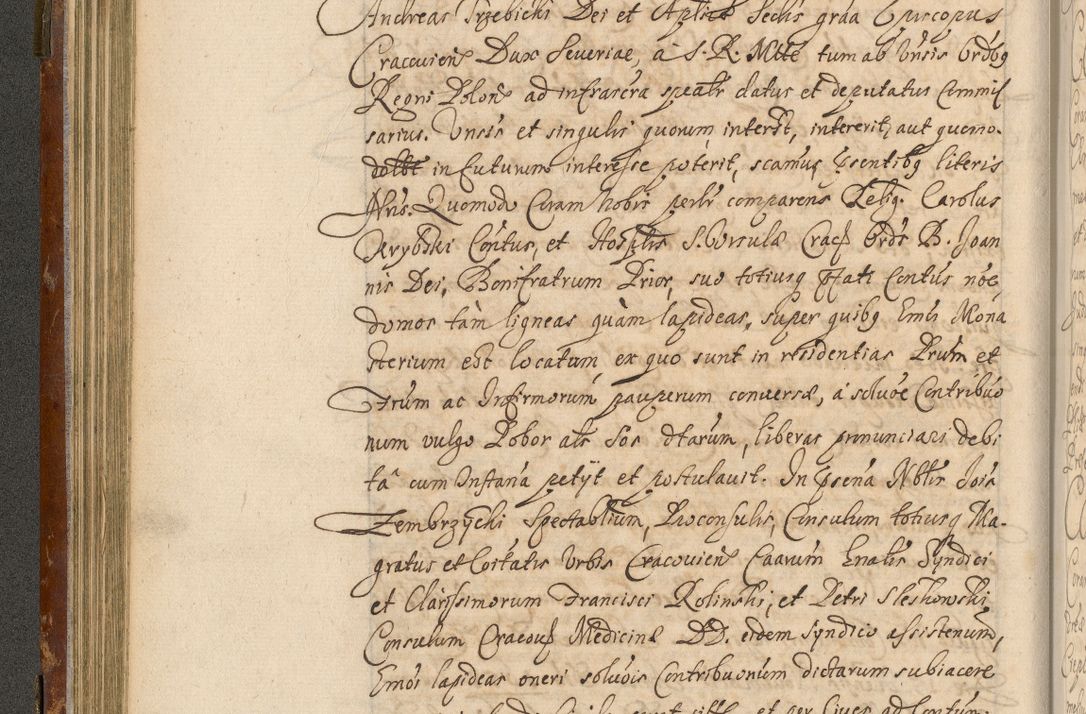 Andreas Trzebicki Dei et Aplica Sedis gráa Episcopus
Cracovien Dux Severiae, à S. R. Mtte tum ab Unsis Ordbg
Regni Polon ad infrascra spealr datus et deputatus Commis
sarius. Unsis et singulis quorum interest, intererit, aut quemo.
dolbt in futurum interesse poterit, scamus psentibg literis
Nris. Quomodo Coram Nobis perlr comparens Relig. Carolus
Krybski Contus, et Hosplis S. Ursulæ Crac Ords B. Joan
nis Dei, Bonifratrum Prior, suo totiusq Pfati Contus nóe,
domos tàm ligneas quàm lapideas, super quibg Emi Mona
sterium est locatum ex quo sunt in residentias Prum et
Frúm ac Infirmorum pauperum conversæ, á solvóe Contribúo
num vulgo Pobor als Sos dtarum, liberas pronunciari debi
tâ cum Instaná petijt et postulavit. In psená Nblis Jois
Zembrzycki Spectablium, Proconsulis, Consulum totiusq Ma-
gratus et Coitatis Urbis Cracovien Caarum Gnalis Syndici
et Clarissimorum Francisci Rolinski, et Petri Sleskowski,
Consulum Cracov Medicinæ DD. eidem Syndico assistenum,
Emói lapideas oneri solvóis Contribuonum dictarum subiacere